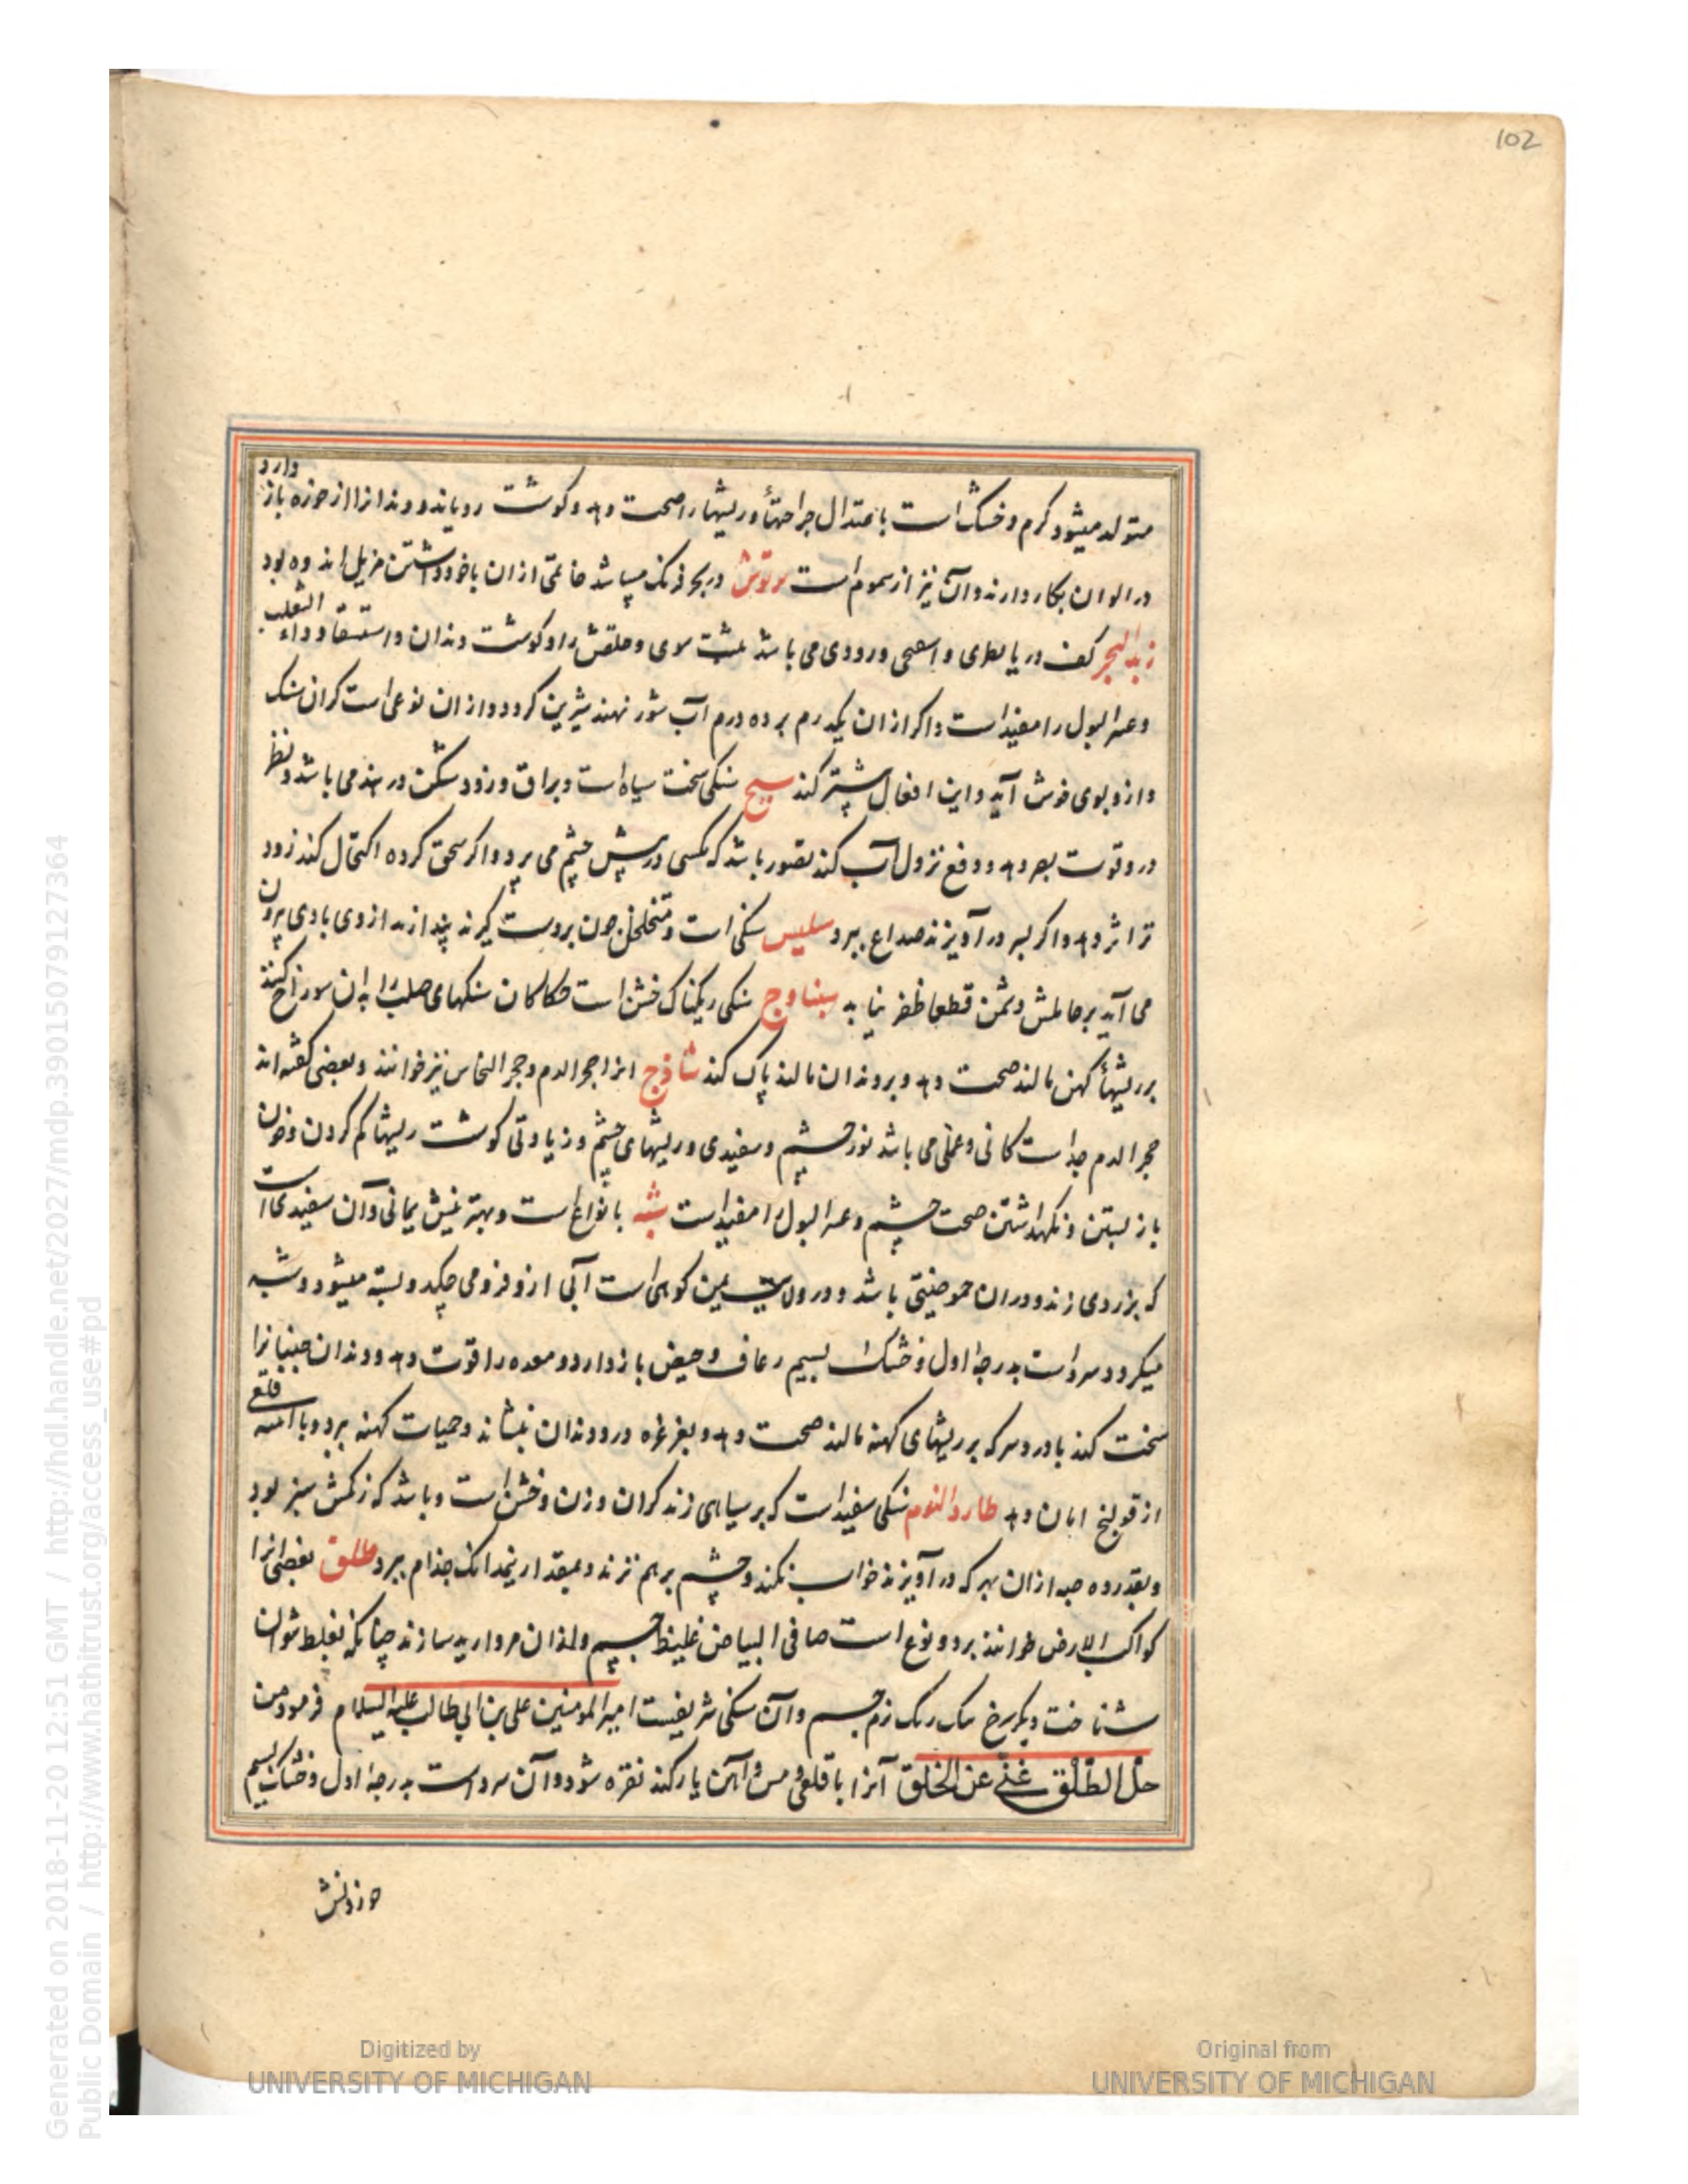 102
متولد میشود کرم و خشک است باعتدال جراحتها و ریشها را صحت دهد و کوشت رویاند و دندانرا از خوزه باز دارد
در الوان بکار دارند و آن نیز از سموم است در بحر فرنک میباشد خاتمی ازان با خود داشتن مزیل اندوه بود
زبد البحر کف دریا وردی می باشد موی و حلقش را و کوشت دندان و استسقا و داء الثعلب
و عسر البول را مفیداست و اکر ازان یکدرم بر ده درم آب شور نهند شیرین کردد و ازان نوعی است کران سنک
و ازو بوی خوش آید و این افعال بیشتر کند سبج سنکی سخت سیاه است و براق و زود شکن در هند می باشد و نظر
درو قوت بصر دهد و دفع نزول آب کند تصور باشد که مکسی در پیش چشم می پرد و اکر سحق کرده اکتحال کند زود
تر اثر دهد و اکر بسر در آویزند صداع ببرد سلیس سنکی است و متخلخل چون بدست کیرند پندارند از وی بادی بیرون
می آید بر حاملش دشمن قطعا ظفر نیابد سنباذج سنکی ریکناک خشن است حکاکان سنکهای صلب را بدان سوراخ کنند
بر ریشهاء کهن مالند صحت دهد و بر دندان مالند پاک کند شاذج انرا حجر الدم و حجر النحاس نیز خوانند و بعضی کفته اند
حجر الدم جداست کانی و عملی می باشد نور چشم و سفیدی و ریشهای چشم و زیادتی کوشت ریشها کم کردن و خون
باز بستن و نکهداشتن صحت چشم و عسر البول را مفیداست شبه بانواع است و بهترینش یمانی و آن سفیدی است
که بزردی زند و دران حموضتی باشد و در ولایت یمن کوهی است آبی ازو فرو می چکد و بسته میشود و شبه
میکردد سرد است بدرجه اول و خشک بسیم رعاف و حیض باز دارد و معده را قوت دهد و دندان جنبانرا
سخت کند با درد سرکه بر ریشهای کهنه مالند صحت دهد و بغرغره درد دندان بنشاند و حمیات کهنه ببرد و با
از قولنج امان دهد طارد النوم سنکی سفید است که بر سیاهی زند کران وزن و خشن است و باشد که رنکش سبز بود
و بقدر ده حبه ازان بهر که در آویزند خواب نکند و چشم برهم نزند و بمقدار نیمدانک جذام ببرد طلق بعضی انرا
کواکب الارض خوانند بر دو نوع است صافی البیاض غلیظ جسیم و ازان مروارید سازند چنانکه بغلط شوان
شناخت دیکر سرخ رنک نرم جسم و آن سنکی شریفست امیر المومنین علی بن ابی طالب علیه السلام فرمود من
حل الطلق غنی عن الخلق آنرا با قلعی و مس و آهن یار کند نقره شود و آن سرد است بدرجه اول و خشک بسیم
Digitized by
UNIVERSITY OF MICHIGAN
Original from
UNIVERSITY OF MICHIGAN
Generated on 2018-11-20 12:51 GMT / http://hdl.handle.net/2027/mdp.39015079127364
Public Domain / http://www.hathitrust.org/access_use#pd